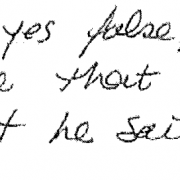 yes false,
that
he sai